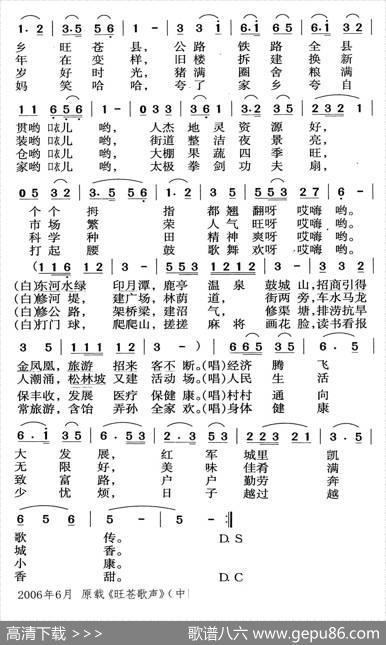 1· 2 3 5 | 3 5 5 6 - | 1· 2 3 5 3 2 |
乡 旺 苍 县， 公 路 铁 路 全 县
年 在 变 样， 旧 楼 拆 建 换 新
岁 好 时 光， 猪 满 圈 舍 粮 满
妈 笑 哈 哈， 夸 了 家 乡 夸 自
1 1 6 5 6 | 1 - | 0 3 3 3 6 1 | 3·2 3 5 | 2 3 2 1
贯哟咳儿 哟， 人杰 地 灵 资 源 好，
装哟咳儿 哟， 街道 整 洁 夜 景 亮，
仓哟咳儿 哟， 大棚 果 蔬 四 季 旺，
家哟咳儿 哟， 太极 拳 剑 功 夫 扇，
0 5 3 2 | 3· 5 5 6 | 1· 2 | 3 5 | 5 5 3 | 2 7 | 6 - |
个 个 拇 指 都 翘 翻呀 哎嗨 哟。
市 场 繁 荣 人 气 旺呀 哎嗨 哟。
科 学 种 田 精 神 爽呀 哎嗨 哟。
打 起 腰 鼓 歌 舞 欢呀 哎嗨 哟。
(1 1 6 1 2 | 3 5 3 | 5 5 3 5 1 2 | 3 2 1 2 | 1 1 1 2 3 5 |
(白)东河水绿 印月潭，鹿亭 温 泉 鼓城山，招商引得
(白)修河 堤， 建广场，林荫 道， 街两 旁，车水马龙
(白)修公 路， 架桥梁，建沼 气， 修渠 塘，排涝抗旱
(白)打门 球， 爬爬山，搓搓 麻 将 画花 脸，读书看报
3 5 | 1 1 1 2 1 2 | 3 - ) | 6 6 5 3 5 | 6 5 6 |
金凤凰，旅游 招来 客不断。(唱)经济 腾 飞
人潮涌，松林坡 又建 活动 场。(唱)人民 生 活
保丰收，发展 医疗 保健 康。(唱)村村 通 向
常旅游，含饴 弄孙 全家 欢。(唱)身体 健 康
6· 1 3 5 | 6·5 5 3 | 5 5 3 2 1 2 | 2 2 3 2 1 | 3·5 |
大 发 展， 红 军 城里 凯
无 限 好， 美 味 佳肴 满
致 富 路， 户 户 勤劳 奔
少 忧 烦， 日 子 越过 越
6 5 6 | 5 - | 5 - :|
歌 传。 D. S
城 香。
小 康。
香 甜。 D. C
2006年6月 原载《旺苍歌声》（中
高清下载 >>> 歌谱八六 www.gepu86.com